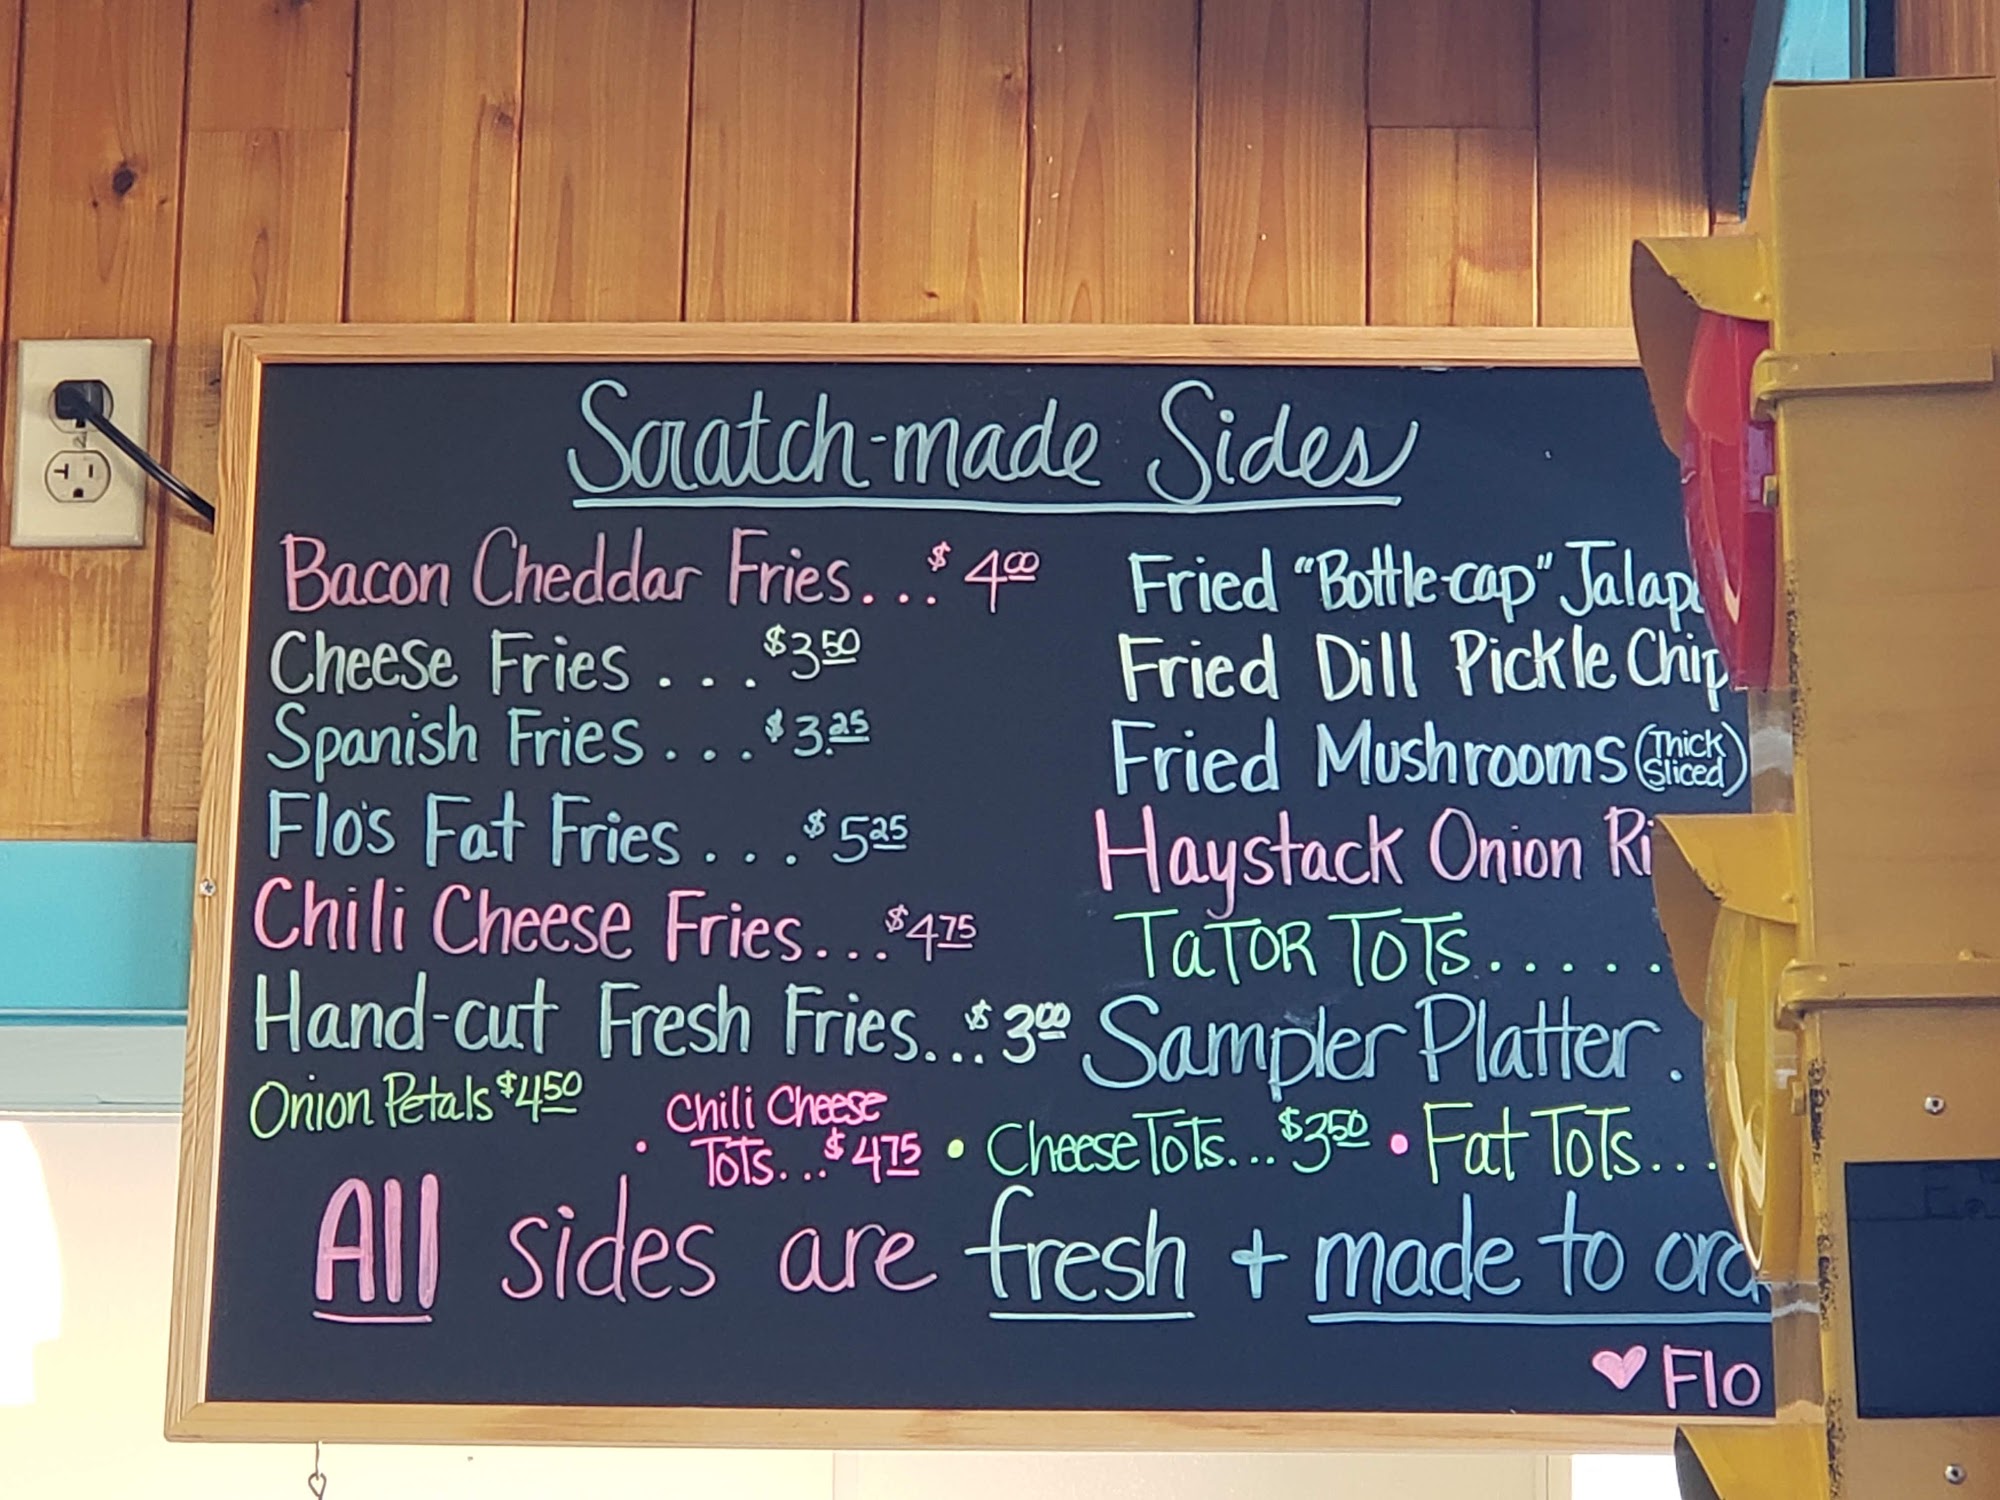 Scratch-made Sides
Bacon Cheddar Fries...$4.00
Cheese Fries...$3.50
Spanish Fries...$3.25
Flo's Fat Fries...$5.25
Chili Cheese Fries...$4.75
Hand-cut Fresh Fries...$3.00
Onion Petals $4.50
Fried "Bottle-cap"
Fried Dill Pickle
Fried Mushrooms (Thick
Sliced)
Haystack Onion
TaTOR TOTs.....
Sampler Platter.
• Chili Cheese
TOTs...$4.75
• Cheese TOTs...$3.50 • Fat TOTs...
All sides are fresh + made to
♥ Flo